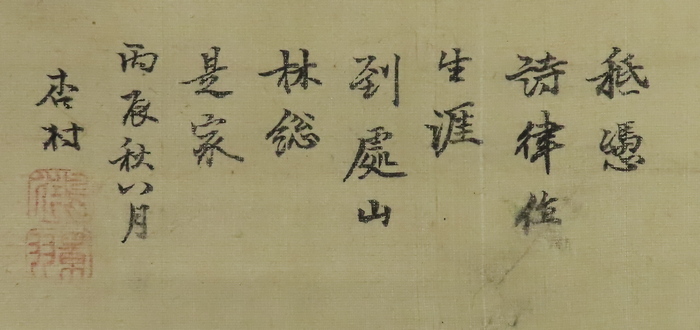 秪憑
詩律作
生涯
到處山
林総
是家
丙辰秋八月
杏村